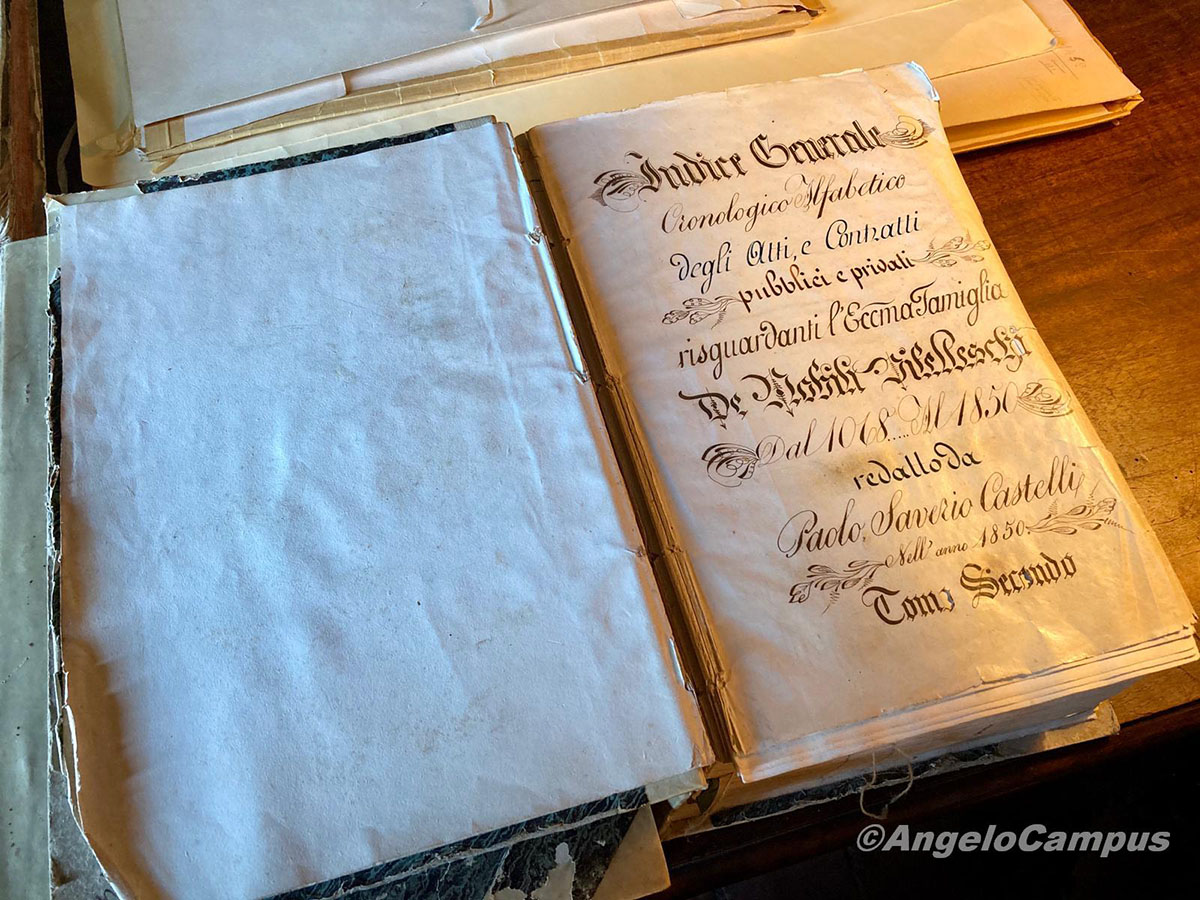 Indice Generale
Cronologico Alfabetico
degli Atti, e Contratti
pubblici e privati
risguardanti l'Eccma Famiglia
De Nobili Vitelleschi
Dal 1068..... Al 1850
redatto da
Paolo, Saverio Castelli
Nell' anno 1850.
Tomo Secondo
©AngeloCampus